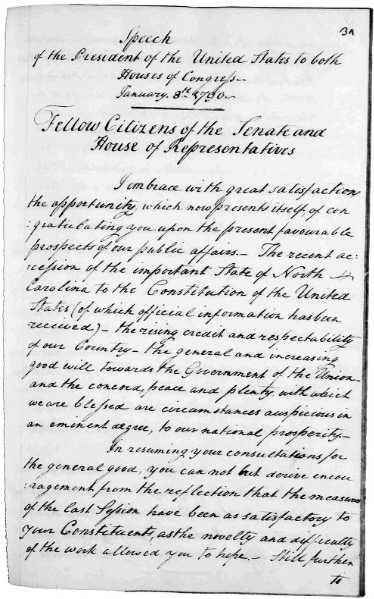 3a
Speech
of the President of the United States to both
Houses of Congress
January. 8th. 1790
Fellow Citizens of the Senate and
House of Representatives
I mbrace with great satisfaction
the opportunity, which now presents itself, of con
:gratulating you upon the present favourable
prospects of our public affairs. – The recent ac:
cession of the important State of North
Carolina to the Constitution of the United
States (of which official information has been
received) – the rising credit and respectability
of our Country – the general and increasing
good will towards the Government of the Union –
and the concord, peace and plenty, with which
we are blessed are circumstances auspicious in
an eminent degree, to our national prosperity –
In resuming your consultations for
the general good, you can not but derive encou
:ragement from the reflection that the measures
of the last Session have been as satisfactory to
your Constituents, as the novelty and difficulty
of the work allowed you to hope – Still further
to